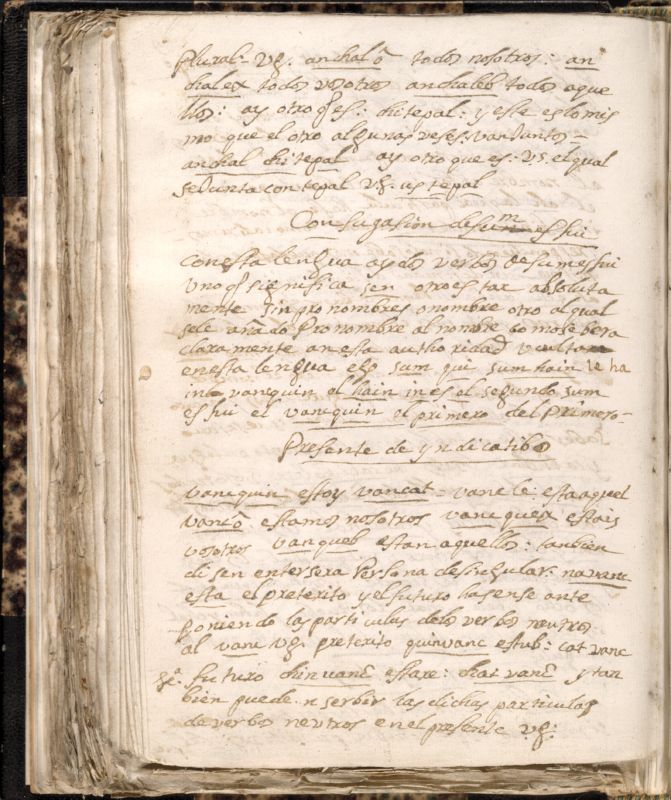 Plural - vg. anchalô todos nosotros: an
chalex todos vosotros anchaleb todos aque
llos: ay otro q̃ es: chitepal: y este es lo mis
mo que el otro algunas veses van Juntos -
anchal chitepal ay otro que es: us. el qual
se Junta con tepal vg: us tepal
Conjugasion de sum es fui
con esta lengua ay dos verbos de sum es fui
Uno q̃ significa ser otro estar absoluta
mente sin pronombres o nombre otro al qual
se le añado Pronombre al nombre como se bera
claramente en esta authoridad
en esta lengua ego sum qui sum hain
in vanquin el hain in es el segundo sum
es fui el vanquin el primero del Primero -
Presente de yndicatibo
vanquin estoy vancat - vanc le esta aquel
vancô estamos nosotros vanquex estais
vosotros vanqueb estan aquellos: tanbien
disen en tersera Persona de singular: na vanc
esta el preterito y el futuro hasense ante
poniendo las particulas de los verbos neutros
al vanc vg. preterito quinvanc estub: cat vanc
gê. futuro chinvanc estare: chat vanc y tan
bien pueden serbir las dichas particulas
de verbos neutros en el presente vg: